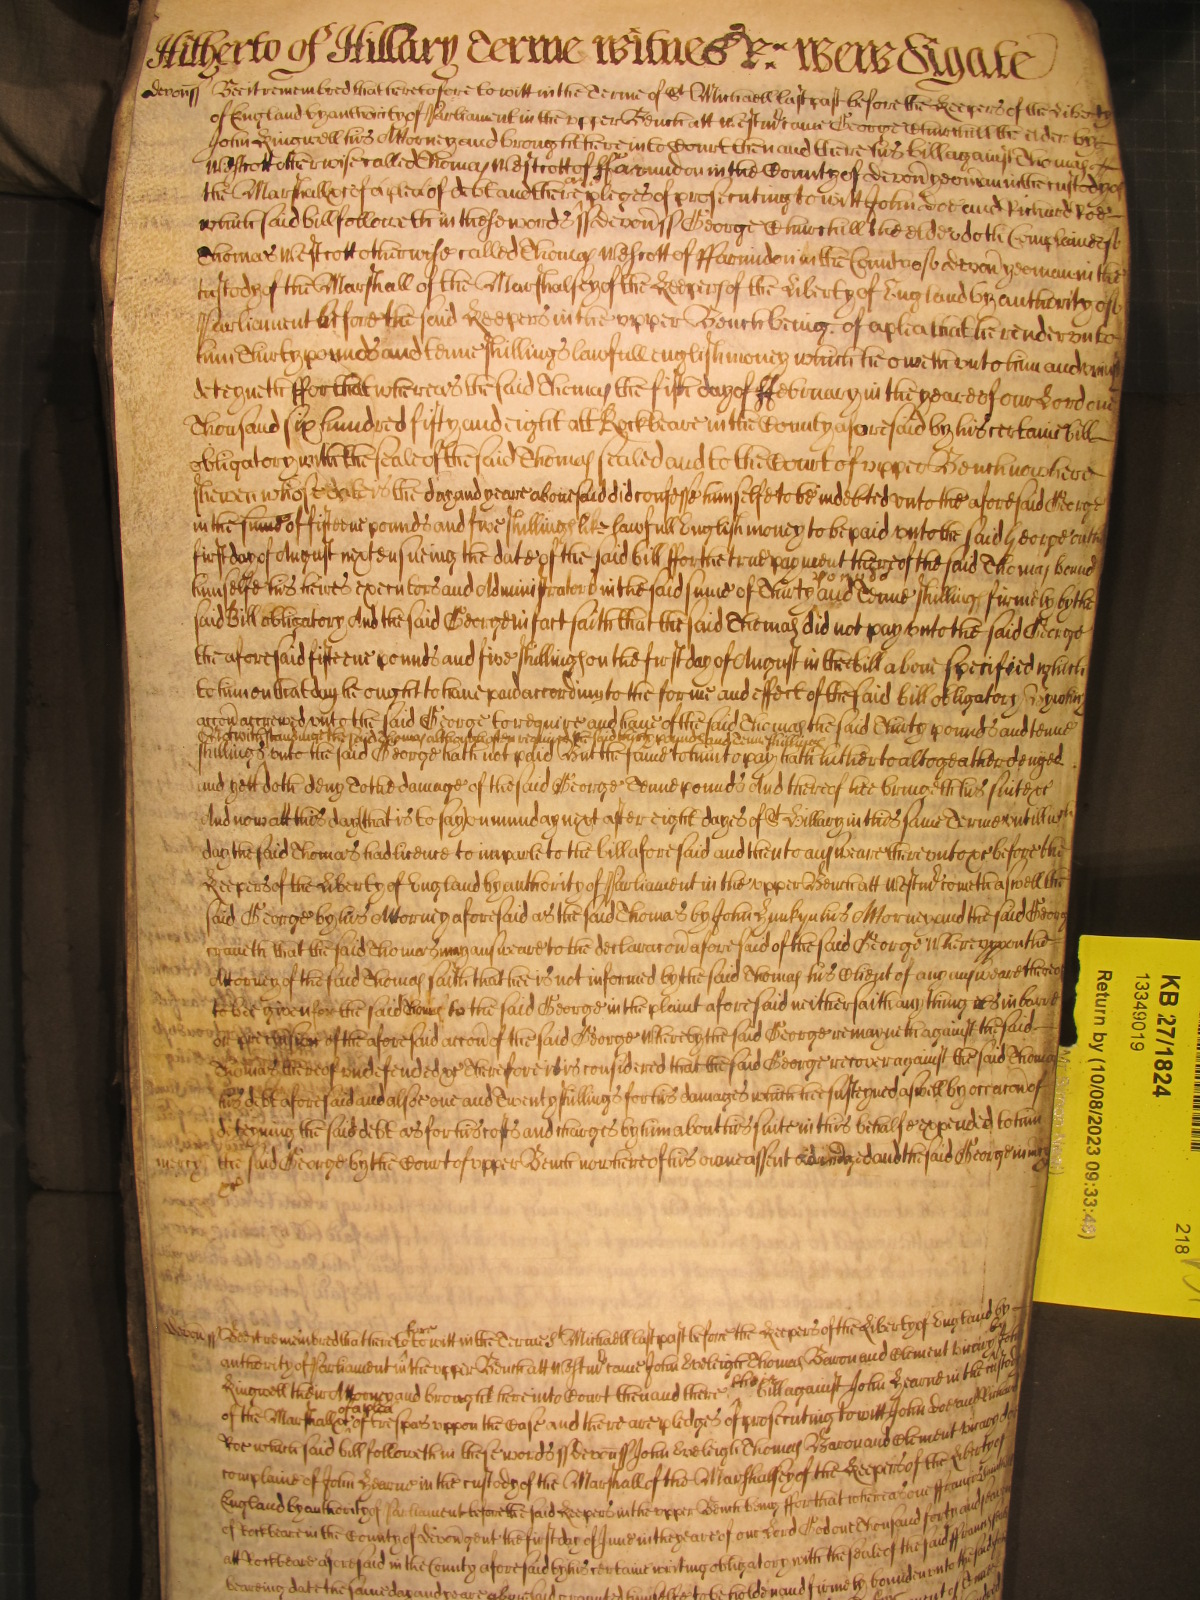 Hitherto of Hillary terme witnes &c: Wew digate
devonss Bee it remembred that heretofore to witt in the Terme of St Michaell last past before the Keepers of the Liberty
of England by authority of Parliament in the upper Bench att Westmr came George Churchill the elder by
John Ringwell his Attorney and brought here into Court then and there his bill against Thomas
Westcott otherwise called Thomas Westcott of ffarindon in the County of devon yeoman in the custody of
the Marshall &c of a plea of debt and there are pleges of prosecuting to witt John Doe and Richard Roe
which said bill followeth in these words ss devon ss George Churchill the elder doth Complaine of
Thomas Westcott otherwise called Thomas Westcott of ffarindon in the County of devon yeoman in the
custody of the Marshall of the Marshalsey of the Keepers of the Liberty of England by authority of
Parliament before the said Keepers in the upper Bench being. of a plea that he render unto
him Thirty pounds and tenne shillings lawfull english money which he oweth unto him and
deteyneth ffor that whereas the said Thomas the first day of ffebruary in the yeare of our Lord one
Thousand six hundred fifty and eight att Rockbeare in the County aforesaid by his certaine bill
obligatory with the seale of the said Thomas sealed and to the Court of upper Bench now here
shewen whose date is the day and yeare abovesaid did confesse himselfe to be indebted unto the aforesaid George
in the sume of fifteene pounds and five shillings like lawfull English money to be paid unto the said George
first day of August next ensueing the date of the said bill ffor the true payment thereof the said Thomas bound
himselfe his heires executors and Administrators in the said sume of Thirty pounds and Tenne shillings firmely by the
said Bill obligatory And the said George in fact saith that the said Thomas did not pay unto the said George
the aforesaid fifteene pounds and five shillings on the first day of August in the bill above specified which
to him on that day he ought to have paid according to the forme and effect of the said bill obligatory Whereby
accon accrewed unto the said George to require and have of the said Thomas the said Thirty pounds and tenne
Notwithstandinge the said Thomas although often required the said thirty pounds and tenne shillings
shillings unto the said George hath not paid But the same to him to pay hath hitherto altogeather denyed
and yett doth deny To the damage of the said George Tenne pounds And thereof hee bringeth his suite &c
And now att this day that is to say on munday next after eight dayes of St Hillary in this same Terme untill wch
day the said Thomas had licence to imparle to the bill aforesaid and then to answeare thereunto &c before the
Keepers of the Liberty of England by authority of Parliament in the upper Bench att Westmr cometh aswell the
said George by his Attorney aforesaid as the said Thomas by John his Attorney and the said George
craveth that the said Thomas may answeare to the declaracon aforesaid of the said George Whereuppon the
Attorney of the said Thomas saith that hee is not informed by the said Thomas his Client of any answeare thereof
to bee given for the said Thomas to the said George in the plaint aforesaid neither saith any thing in barre
or preclusion of the aforesaid accon of the said George Whereby the said George remayneth against the said
Thomas thereof undefended &c Therefore it is considered that the said George recover against the said Thomas
his debt aforesaid and alsoe one and Twenty shillings for his damages which hee susteyned aswell by occacon of
deteyning the said debt as for his costs and charges by him about his suite in this behalfe expended to him
mercy the said George by the Court of upper Bench now here of his owne assent adiudged and the said George in mcy
&c
devon ss Bee it remembred that heretofore to witt in the Terme of St Michaell last past before the Keepers of the Liberty of England by
authority of Parliament in the upper Bench att Westmr came John Eveleigh Thomas Baron and Clement by John
Ringwell their Attorney and brought here into Court then and there their bill against John Hearne in the custody
of the Marshall &c of a plea of trespas uppon the Case and there are pledges of prosecuting to witt John Doe and Richard
Roe which said bill followeth in these words ss devon ss John Eveleigh Thomas Baron and Clement doe
complaine of John Hearne in the custody of the Marshall of the Marshalsey of the Keepers of the Liberty of
England by authority of Parliament before the said Keepers in the upper Bench being ffor that whereas one ffrancis
of Rockbeare in the County of devon gent the first day of June in the yeare of our Lord God one Thousand forty and
att Rockbeare aforesaid in the County aforesaid by his certaine writing obligatory with the seale of the said ffrancis
beareing date the same day and yeare abovesaid granted himselfe to be holden and firmely bounden unto the said
KB 27/1824
13349019
Return by (10/08/2023 09:33:48)
218